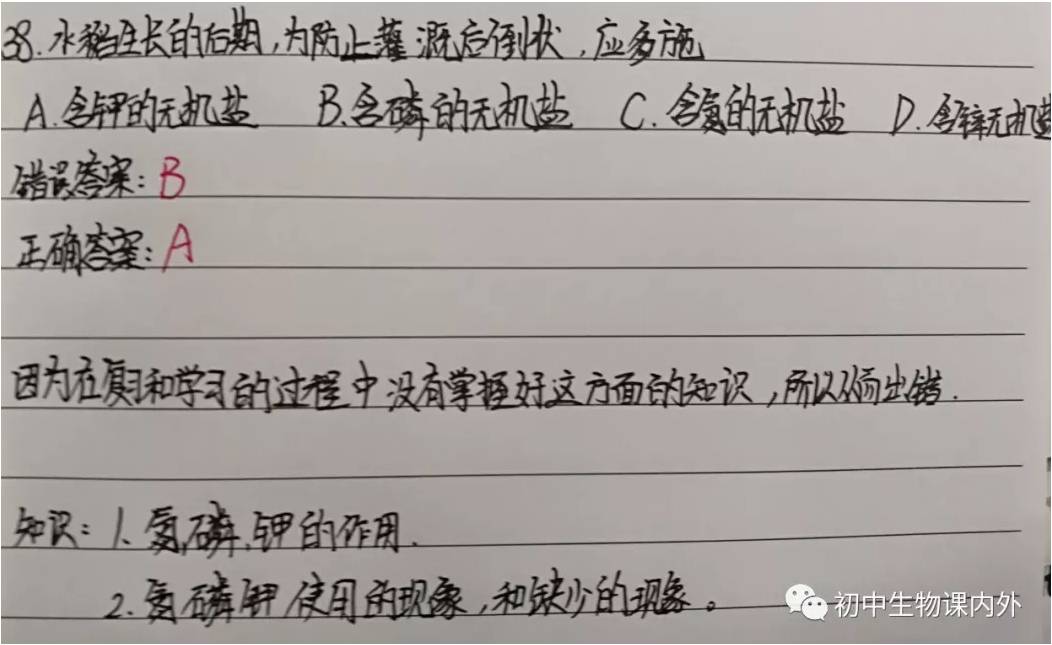 38.水稻生长的后期,为防止灌溉后倒状,应多施
A.含钾的无机盐 B.含磷的无机盐 C.含氮的无机盐 D.含锌无机盐
错误答案:B
正确答案:A
因为在复习和学习的过程中没有掌握好这方面的知识,所以从而出错.
知识:1.氮,磷,钾的作用.
2.氮磷钾使用的现象,和缺少的现象。
初中生物课内外